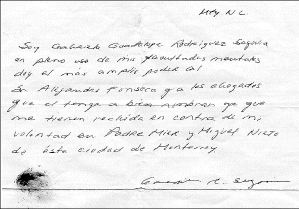 Mty N L
Soy Gabriela Guadalupe Rodriguez Segovia
en pleno uso de mis facultades mentales
doy el más amplio poder al
Sr Alejandro Fonseca y a los abogados
que el tenga a bien nombrar ya que
me tienen recluida en contra de mi
voluntad en Padre Mier y Miguel Nieto
de ésta ciudad de Monterrey
R.